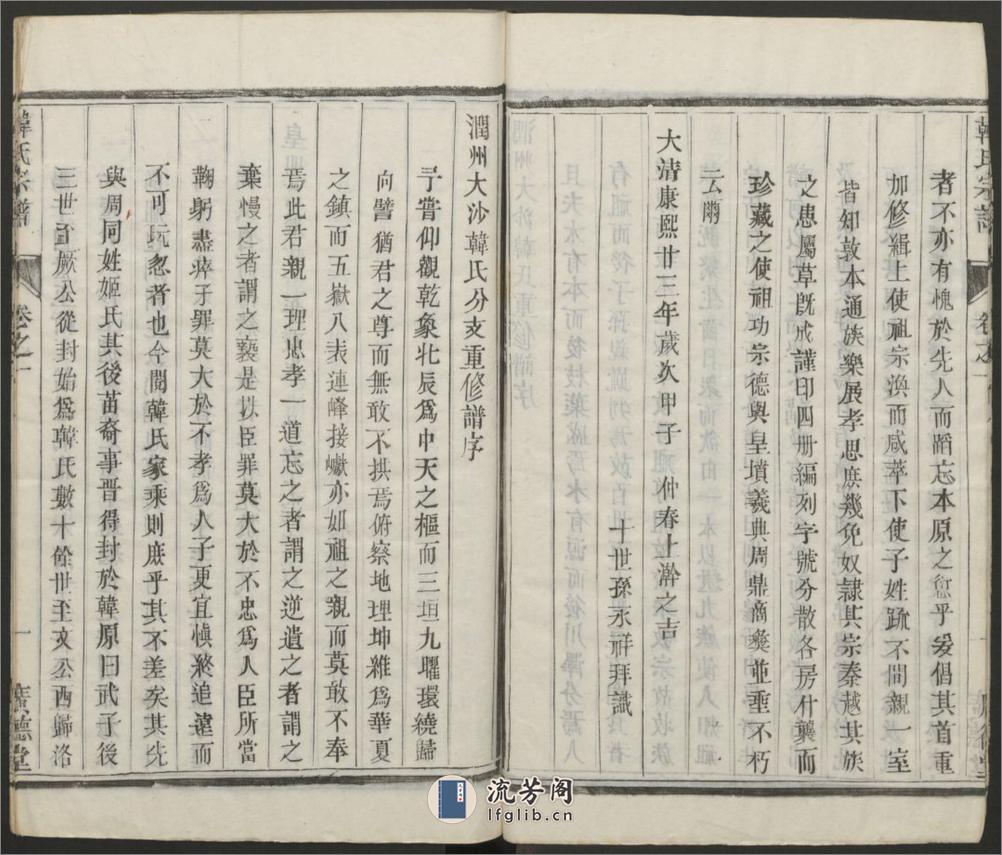 韓氏宗譜
卷之一
者不亦有愧於先人而蹈忘本原之愆乎爰倡其首重
加修緝上使祖宗渙而咸萃下使子姓疏不間親一室
皆知敦本通族樂展孝思庶幾免奴隸其宗秦越其族
之患屬草旣成謹印四册編列字號分散各房什襲而
珍藏之使祖功宗德與皇墳羲典周鼎商彝並重不朽
云爾
大清康熙廿三年歲次甲子仲春上澣之吉
十世孫永祥拜識
潤州大沙韓氏分支重修譜序
予嘗仰觀乾象北辰爲中天之樞而三垣九曜環繞歸
向譬猶君之尊而無敢不拱焉俯察地理坤維爲華夏
之鎮而五嶽八表連峰接巘亦如祖之親而莫敢不奉
焉此君親一理忠孝一道忘之者謂之逆遺之者謂之
棄慢之者謂之褻是以臣罪莫大於不忠爲人臣所當
鞠躬盡瘁子罪莫大於不孝爲人子更宜愼終追遠而
不可玩忽者也今閱韓氏家乘則庶乎其不差矣其先
與周同姓姬氏其後苗裔事晉得封於韓原曰武子後
三世至厥公從封始爲韓氏數十餘世至文公酉歸洛
韓氏宗譜
卷之一
一
廣德堂
流芳阁
lfglib.cn